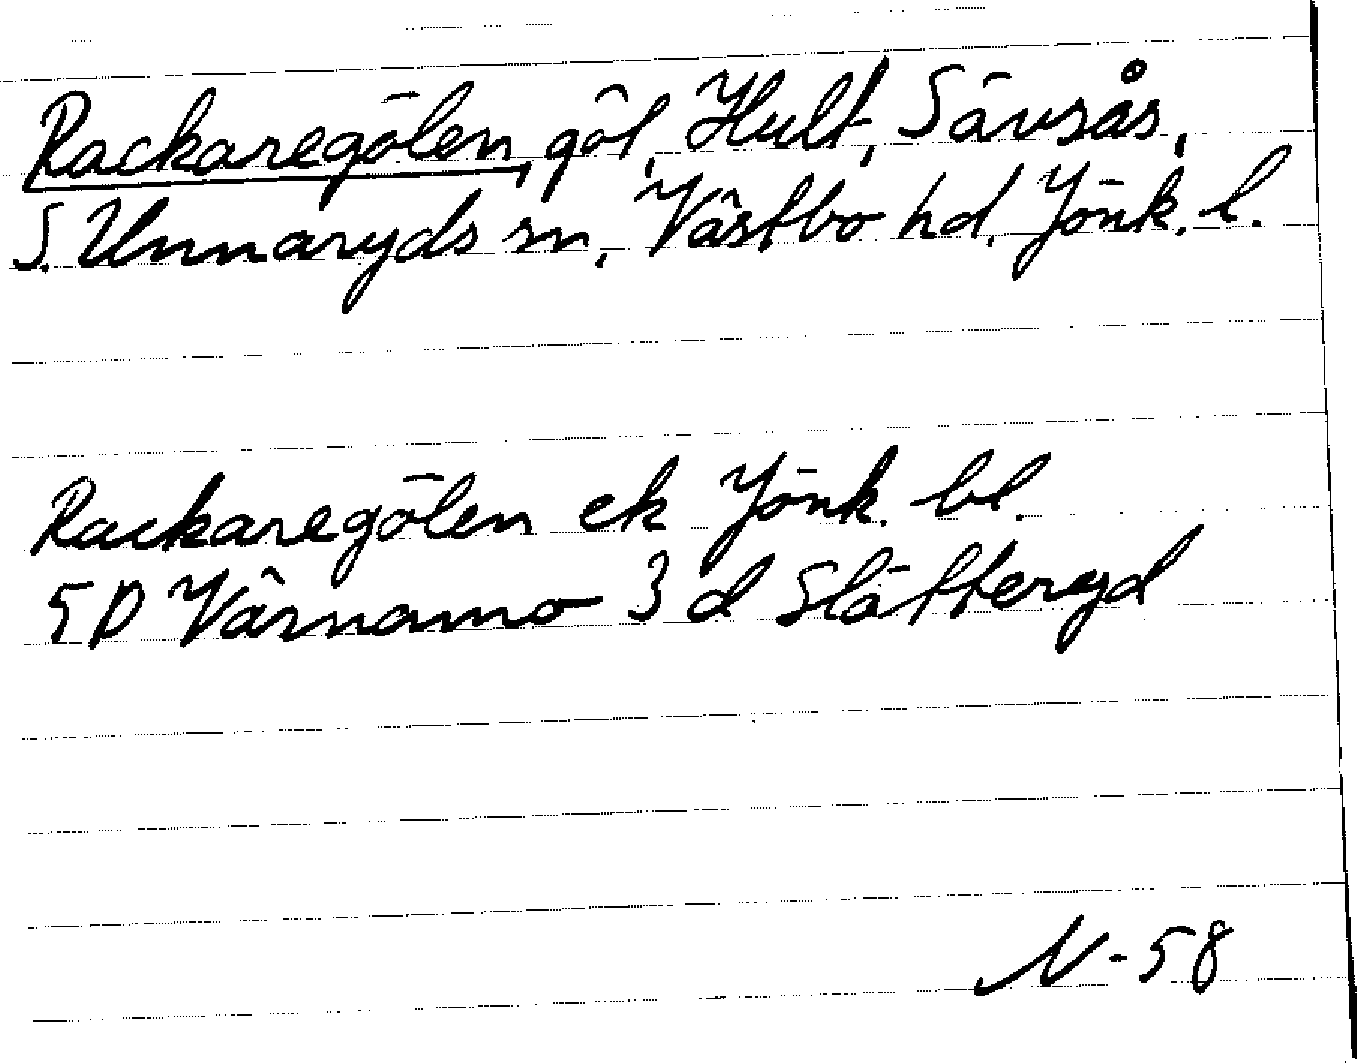 Rackaregölen, göl, Hult, Sävsås,
S. Unnaryds sn, Västbo hd, Jönk. l.
Rackaregölen ek Jönk. bl.
5D Värnamo 3 d Slätteryd
N-58